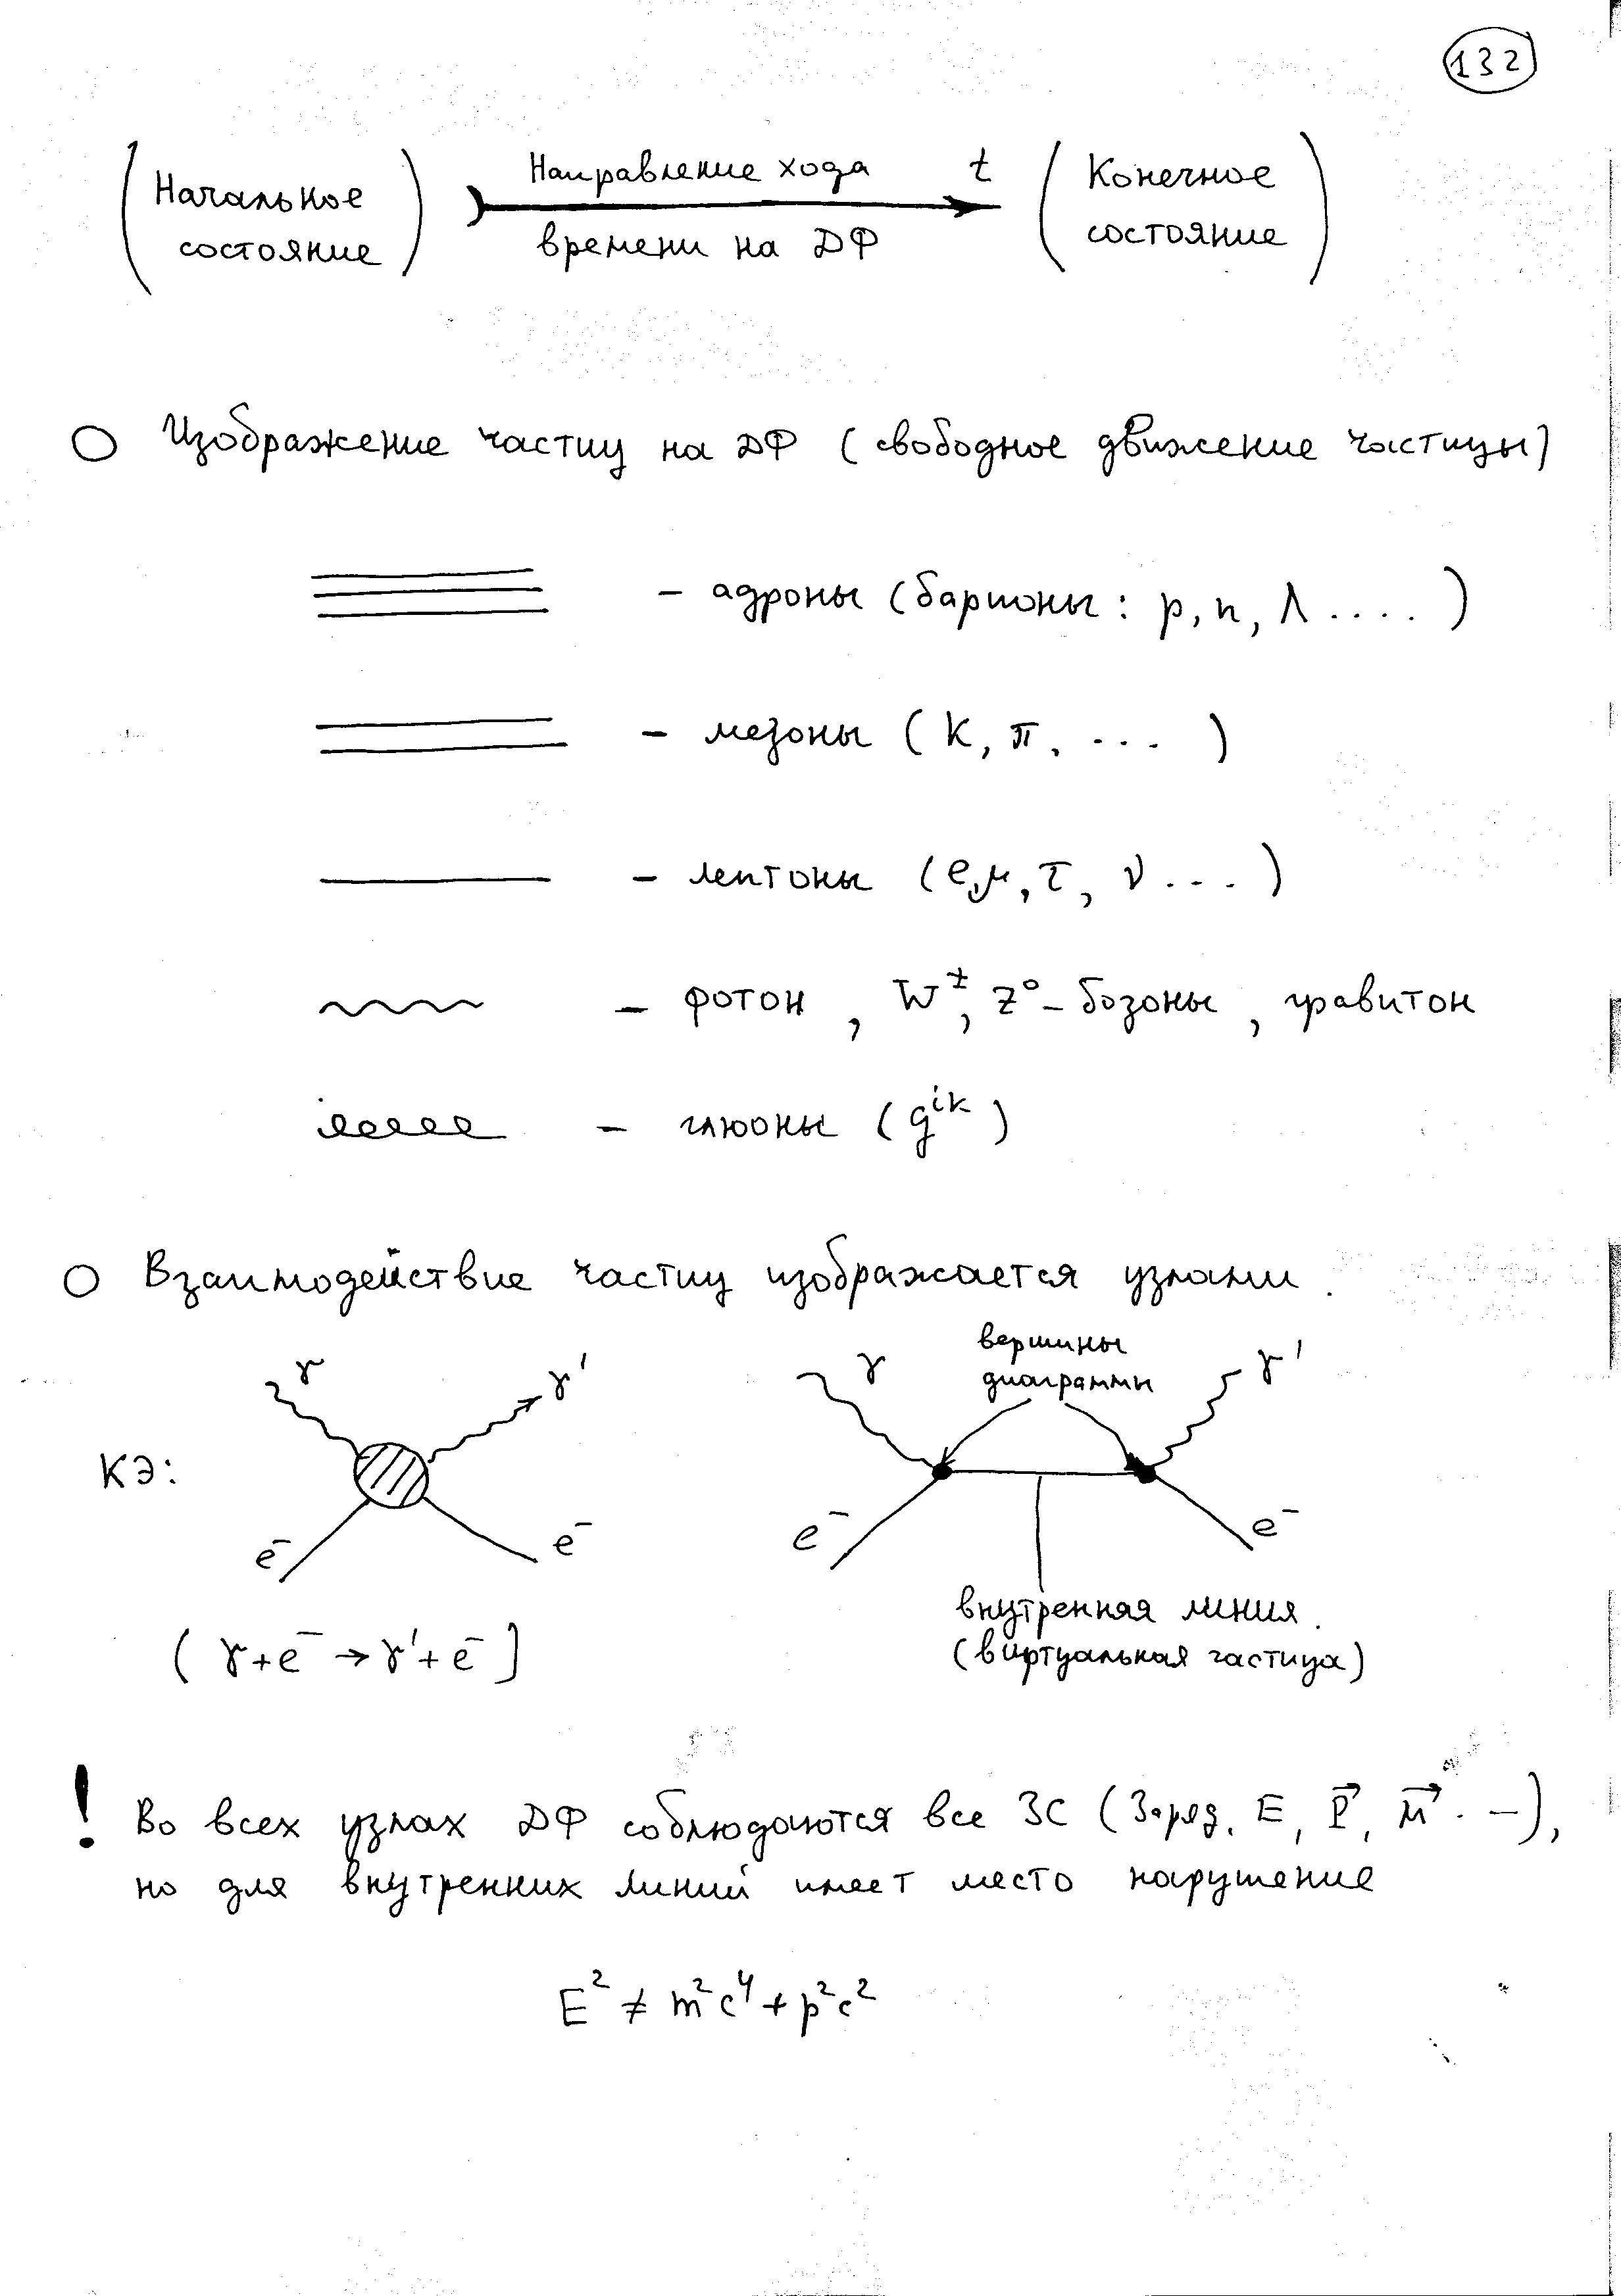 132
(Начальное состояние) Направление хода времени на ДФ t (Конечное состояние)
Изображение частиц на ДФ (свободное движение частицы)
– адроны (барионы: p, n, Λ ....)
– мезоны (K, π, ...)
– лептоны (e, μ, τ, ν ...)
– фотон, W±, Z⁰ – бозоны, гравитон
– глюоны (g^ik)
Взаимодействие частиц изображается узлами.
γ γ' γ γ'
вершины
диаграммы
КЭ:
e⁻ e⁻ e⁻ e⁻
внутренняя линия
(виртуальная частица)
(γ + e⁻ → γ' + e⁻)
! Во всех узлах ДФ соблюдаются все ЗС (Заряд, E, P⃗, M⃗ ...),
но для внутренних линий имеет место нарушение
E² ≠ m²c⁴ + p²c²